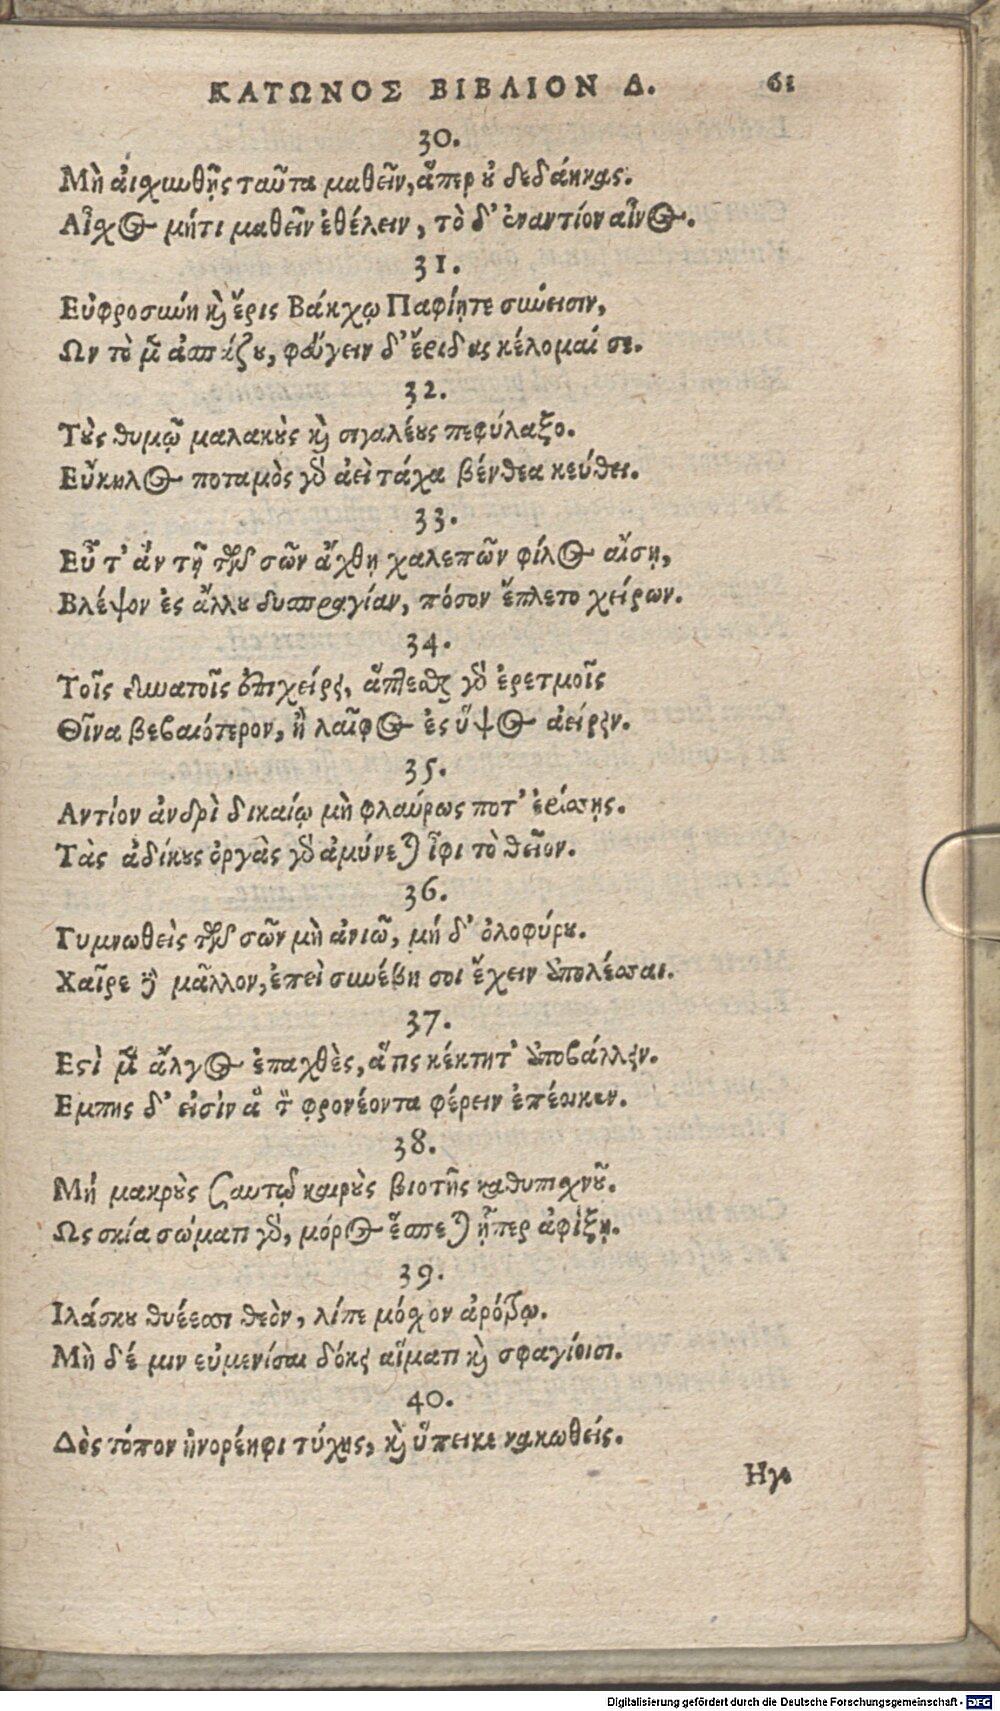 ΚΑΤΩΝΟΣ ΒΙΒΛΙΟΝ Δ. 61
30.
Μὴ αἰχυνθῇς ταῦτα μαθεῖν, ἅπερ ȣ̓ δεδάηκας.
Αἶχος μήτι μαθεῖν ἐθέλειν, τὸ δ' ἐναντίον αἶνος.
31.
Εὐφροσύνη κὶ ἔρις Βάκχῳ Παφίῃτε σύνεισιν,
Ων τὸ μ̃ ἀσπάζου, φεύγειν δ' ἔριδας κέλομαί σε.
32.
Τοὺς θυμῷ μαλακοὺς κὶ σιγαλέους πεφύλαξο.
Εὔκηλος ποταμὸς γὸ ἀεὶ τάχα βένθεα κεύθει.
33.
Εὖ τ' ἀν τῇ τῶν σῶν ἄχθῃ χαλεπῶν φίλος αἴσῃ,
Βλέψον ἐς ἄλλου δυσπραγίαν, πόσον ἔπλετο χείρων.
34.
Τοῖς δυνατοῖς ἐπιχείρει, ἅπλεσθαι γὸ ἐρετμοῖς
Θῖνα βεβαιότερον, ἢ λαῖφος ἐς ὕψος ἀείρειν.
35.
Αντίον ἀνδρὶ δικαίῳ μὴ φλαύρως ποτ' ἐρίσῃς.
Τὰς ἀδίκους ὀργὰς γὸ ἀμύνεται ἶφι τὸ θεῖον.
36.
Γυμνωθεὶς τῶν σῶν μὴ ἀνιῶ, μή δ' ὀλοφύρου.
Χαῖρε δὲ μᾶλλον, ἐπεὶ συνέβη σοι ἔχειν ἀπολέσσαι.
37.
Εστὶ μ̃ ἄλγος ἐπαχθὲς, ἅτις κέκτητ' ἀποβάλλειν.
Εμπης δ' εἰσὶν ἃ τ̀ φρονέοντα φέρειν ἐπέοικεν.
38.
Μή μακροὺς σαυτῷ καιροὺς βιοτῆς καθυπιχνοῦ.
Ως σκία σώματι γὸ, μόρος ἕσπεται ᾗπερ ἀφίξῃ.
39.
Ιλάσκου θυέεσσι θεὸν, λίπε μόχον ἀρότρῳ.
Μὴ δέ μιν εὐμενίσαι δόκει αἵματι κὶ σφαγίοισι.
40.
Δὸς τόπον ἠνορέηφι τύχης, κὶ ὕπεικε κακωθείς.
Ηγι
Digitalisierung gefördert durch die Deutsche Forschungsgemeinschaft - DFG